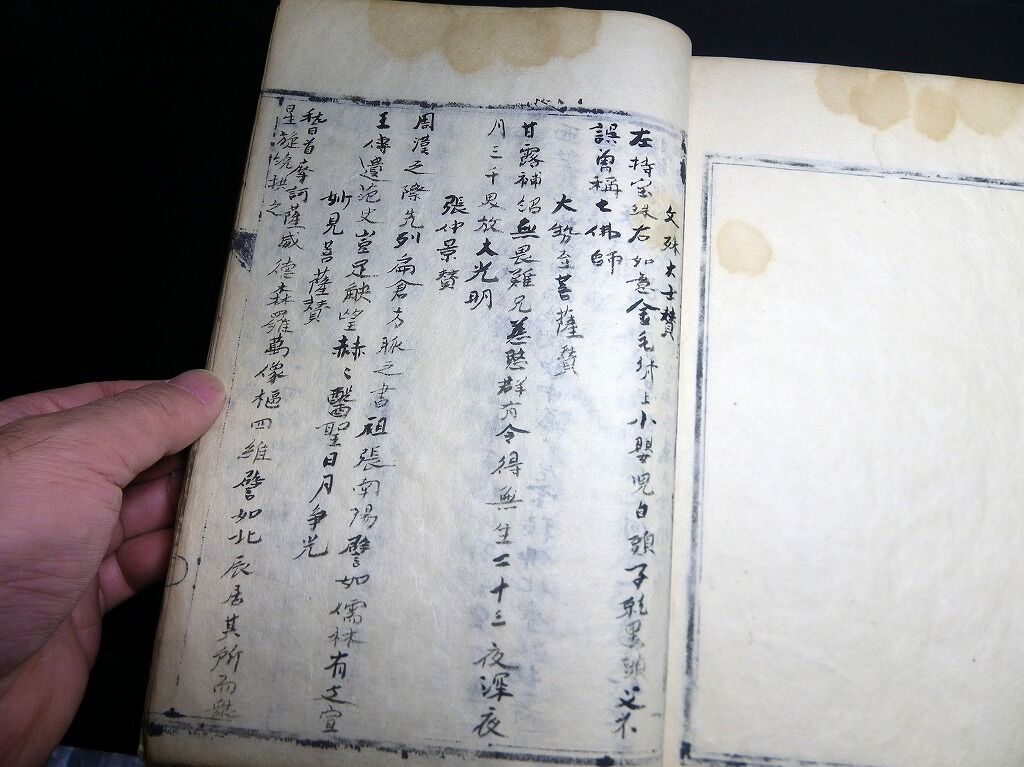 文殊大士賛
左持宝珠右如意金毛背上小嬰児白頭子乾黒頭父不
誤曽稱七佛師
大勢至菩薩賛
甘露補紹無畏難兄慈愍群有令得無生二十三夜深夜
月三千界放大光明
張仲景賛
周漢之際先列扁倉方脈之書祖張南陽譬如儒林有文宣
王傳遺范史豈足缺望赫〻醫聖日月争光
妙見菩薩賛
稽首摩訶薩威德森羅萬像樞四維譬如北辰居其所而
星旋繞拱之